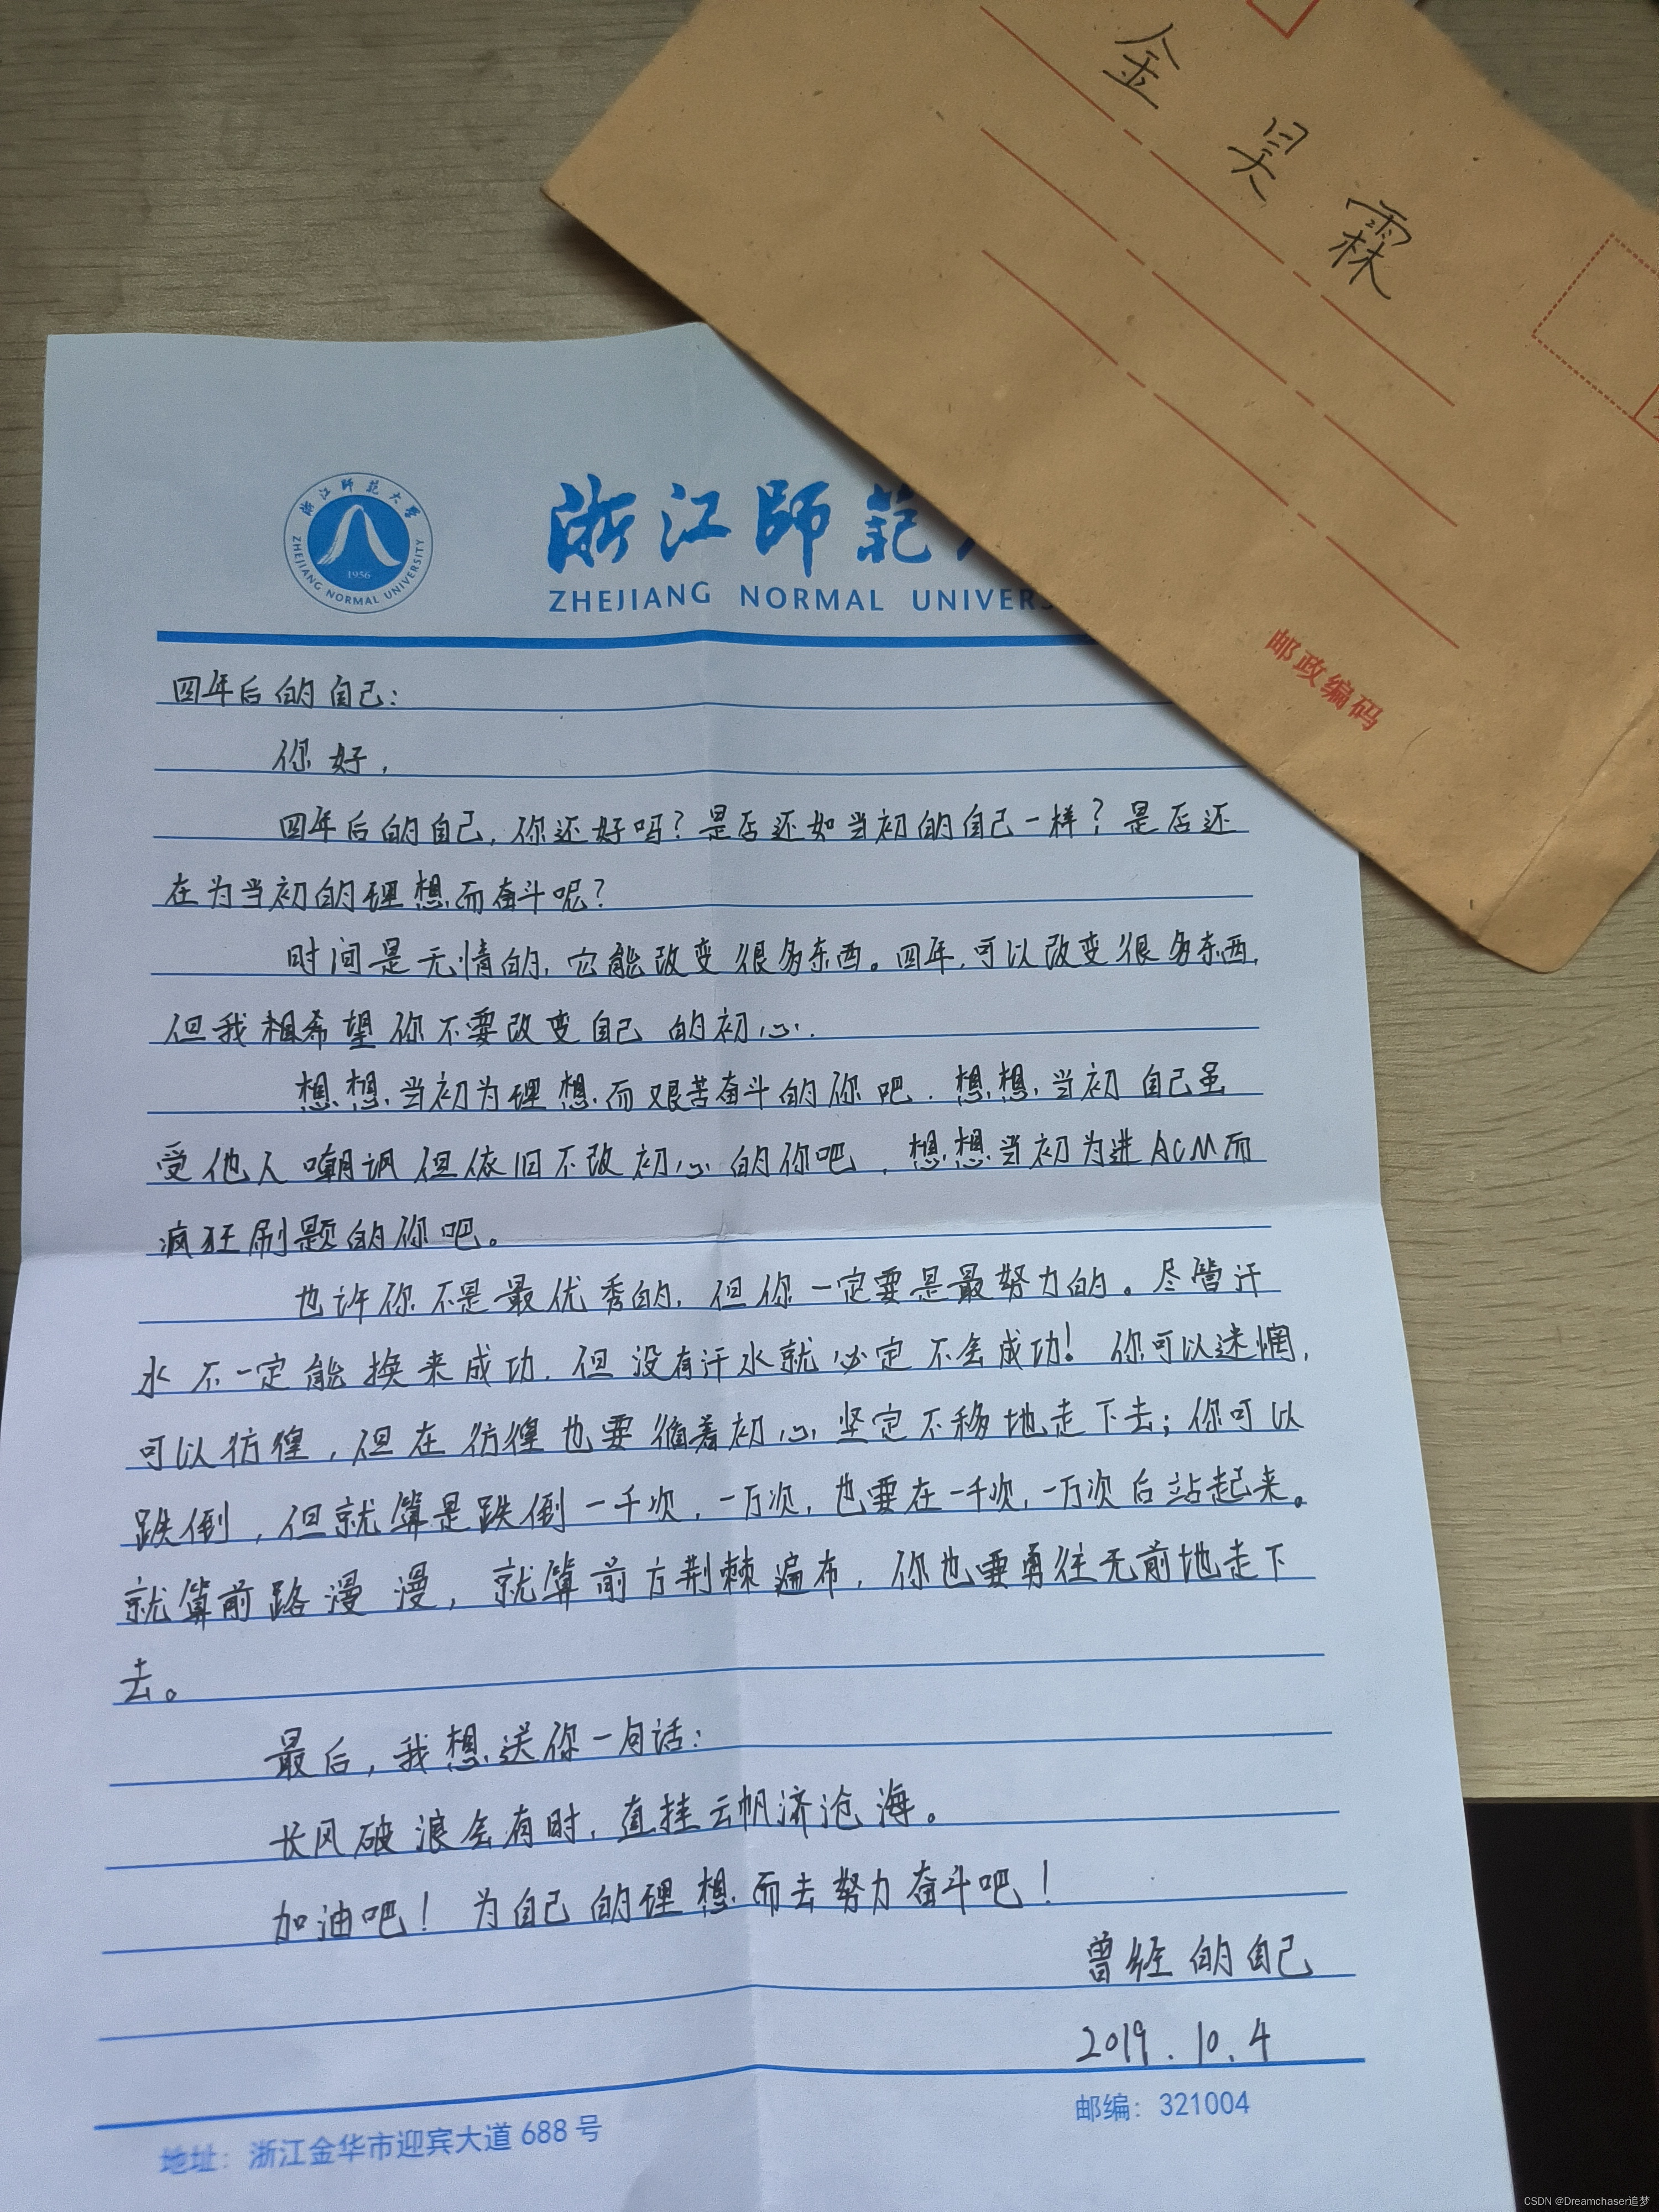 金昊霖
邮政编码
浙江師範大學
ZHEJIANG NORMAL UNIVERSITY
1956
浙江師範
ZHEJIANG NORMAL UNIVERS
四年后的自己:
你好,
四年后的自己,你还好吗?是否还如当初的自己一样?是否还
在为当初的理想而奋斗呢?
时间是无情的,它能改变很多东西。四年,可以改变很多东西,
但我相希望你不要改变自己的初心.
想想当初为理想而艰苦奋斗的你吧.想想当初自己虽
受他人嘲讽但依旧不改初心的你吧,想想当初为进ACM而
疯狂刷题的你吧。
也许你不是最优秀的,但你一定要是最努力的。尽管汗
水不一定能换来成功,但没有汗水就必定不会成功!你可以迷惘,
可以彷徨,但在彷徨也要循着初心坚定不移地走下去;你可以
跌倒,但就算是跌倒一千次,一万次,也要在一千次,一万次后站起来。
就算前路漫漫,就算前方荆棘遍布,你也要勇往无前地走下
去。
最后,我想送你一句话:
长风破浪会有时,直挂云帆济沧海。
加油吧!为自己的理想而去努力奋斗吧!
曾经的自己
2019.10.4
地址:浙江金华市迎宾大道688号
邮编:321004
CSDN @Dreamchaser追梦